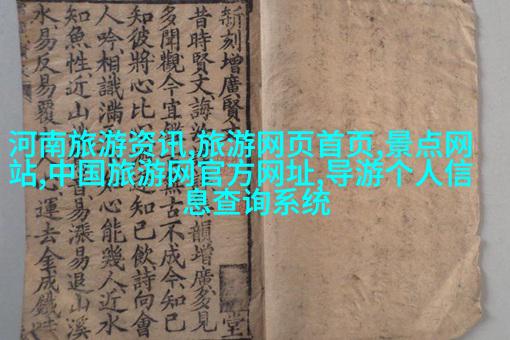 河南旅游资讯,旅游网页首页,景点网
站,中国旅游网官方网址,导游个人信
息查询系统
新刻增廣賢 堂
昔時賢文誨汝 韻增廣多見
多聞觀今宜 無古不成今知己
知彼將心比 知己飲詩向會
人吟相識滿 心能幾人近水
知魚性近山 音易漲易退山溪
水易反易覆 人心運去金成鐵